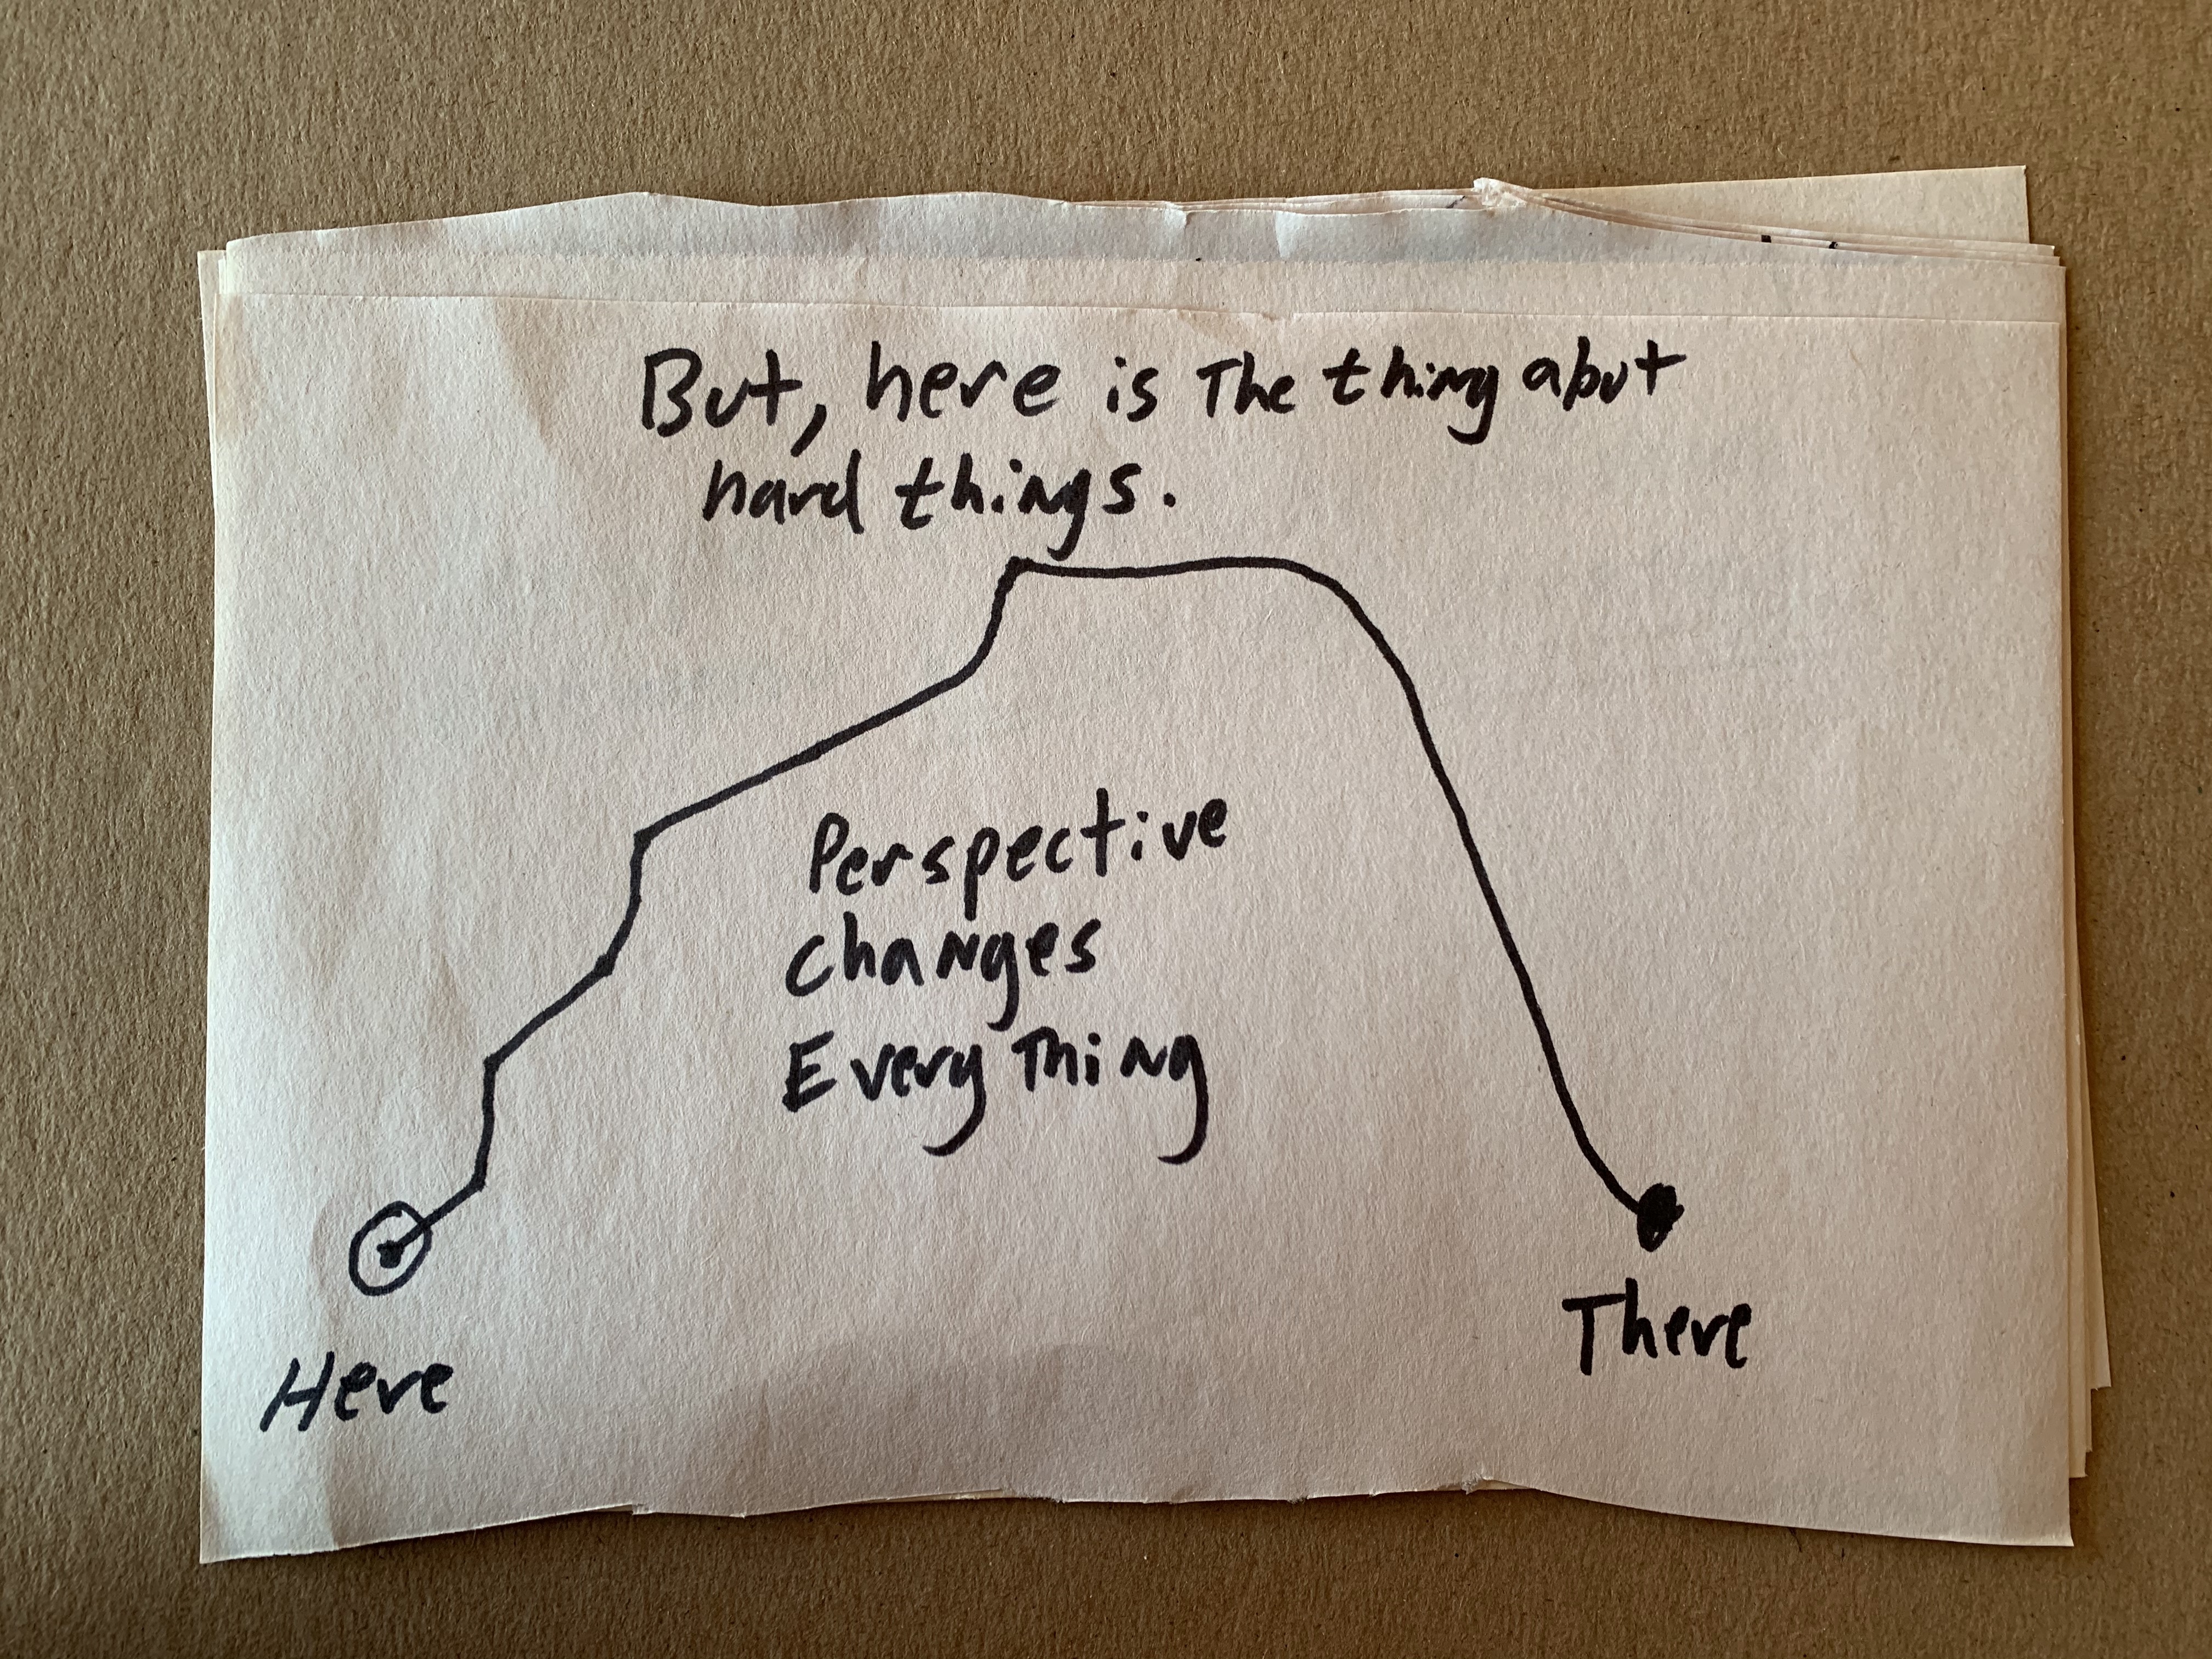 But, here is The thing abut
hard things.
Perspective
changes
Every Thing
Here
There